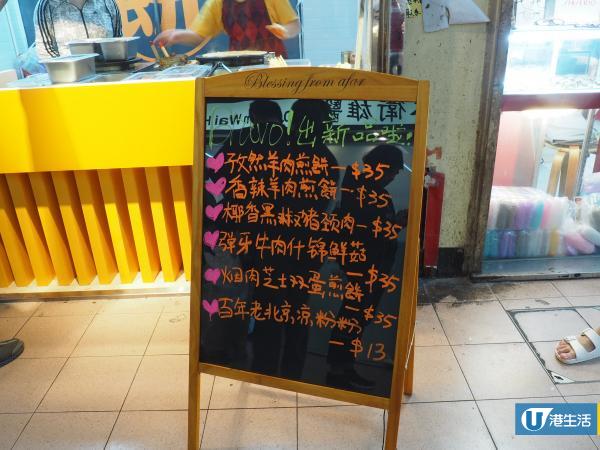 Blessing from afar
新品新出!
孜然羊肉煎餅-$35
香辣羊肉煎餅-$35
椰香黑椒豬頸肉-$35
彈牙牛肉什錦鮮菇
-$35
烟肉芝士双蛋煎餅
-$35
百年老北京涼粉粉
-$13
U 港生活